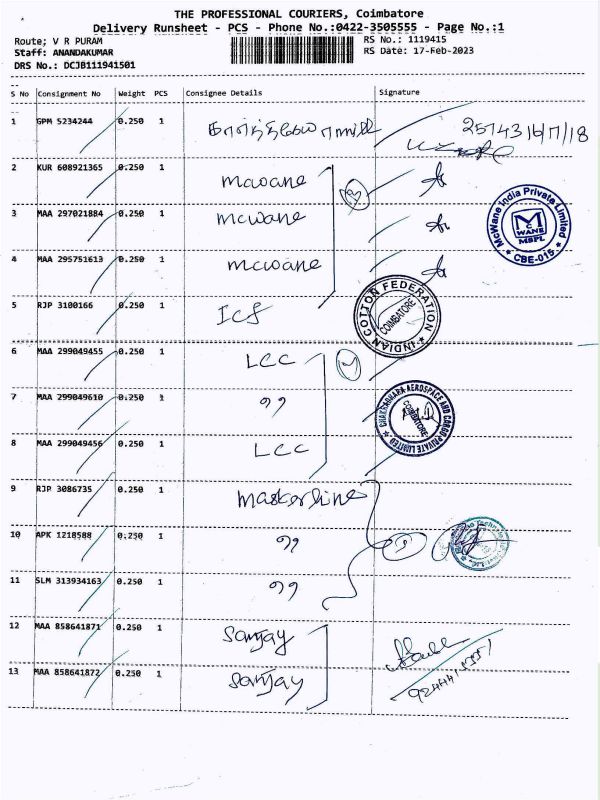 THE PROFESSIONAL COURIERS, Coimbatore
Delivery Runsheet - PCS - Phone No.:0422-3505555 - Page No.:1
Route; V R PURAM
RS No.: 1119415
Staff: ANANDAKUMAR
RS Date: 17-Feb-2023
DRS No.: DCJB111941501
S No Consignment No Weight PCS Consignee Details Signature
1 GPM 5234244 0.250 1
2 KUR 608921365 0.250 1 mcwane
3 MAA 297021884 0.250 1 mcwane
4 MAA 295751613 0.250 1 mcwane
McWane India Private Limited
MC WANE
MSPL
CBE-015
5 RJP 3100166 0.250 1 ICF
INDIAN COTTON FEDERATION
COIMBATORE
6 MAA 299049455 0.250 1 LCC
7 MAA 299049610 0.250 1 "
CHAKSADHARA AEROSPACE AND CARGO PRIVATE LIMITED
COIMBATORE
8 MAA 299049456 0.250 1 LCC
9 RJP 3086735 0.250 1
10 APK 1218588 0.250 1 "
11 SLM 313934163 0.250 1 "
12 MAA 858641871 0.250 1 Sanjay
13 MAA 858641872 0.250 1 Sanjay